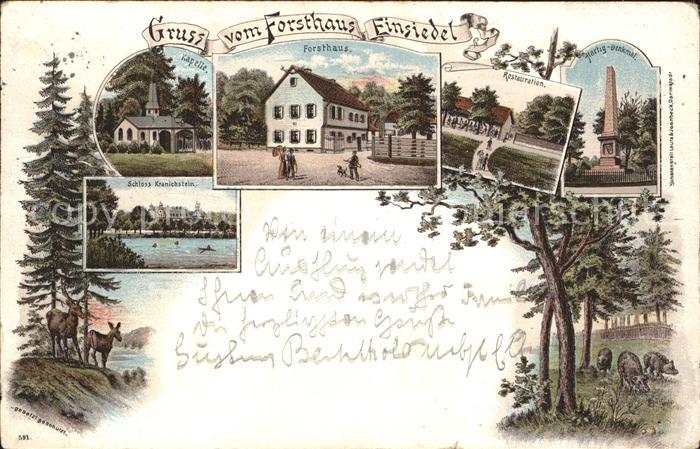 Gruss vom Forsthaus Einsiedel
Kapelle
Forsthaus.
Restauration.
Hartig-Denkmal.
Schloss Kranichstein.
Von einem
Ausflug sendet
Ihnen und werther Familie
die herzlichsten Grüße
Berthold
gesetzl. geschützt.
591.